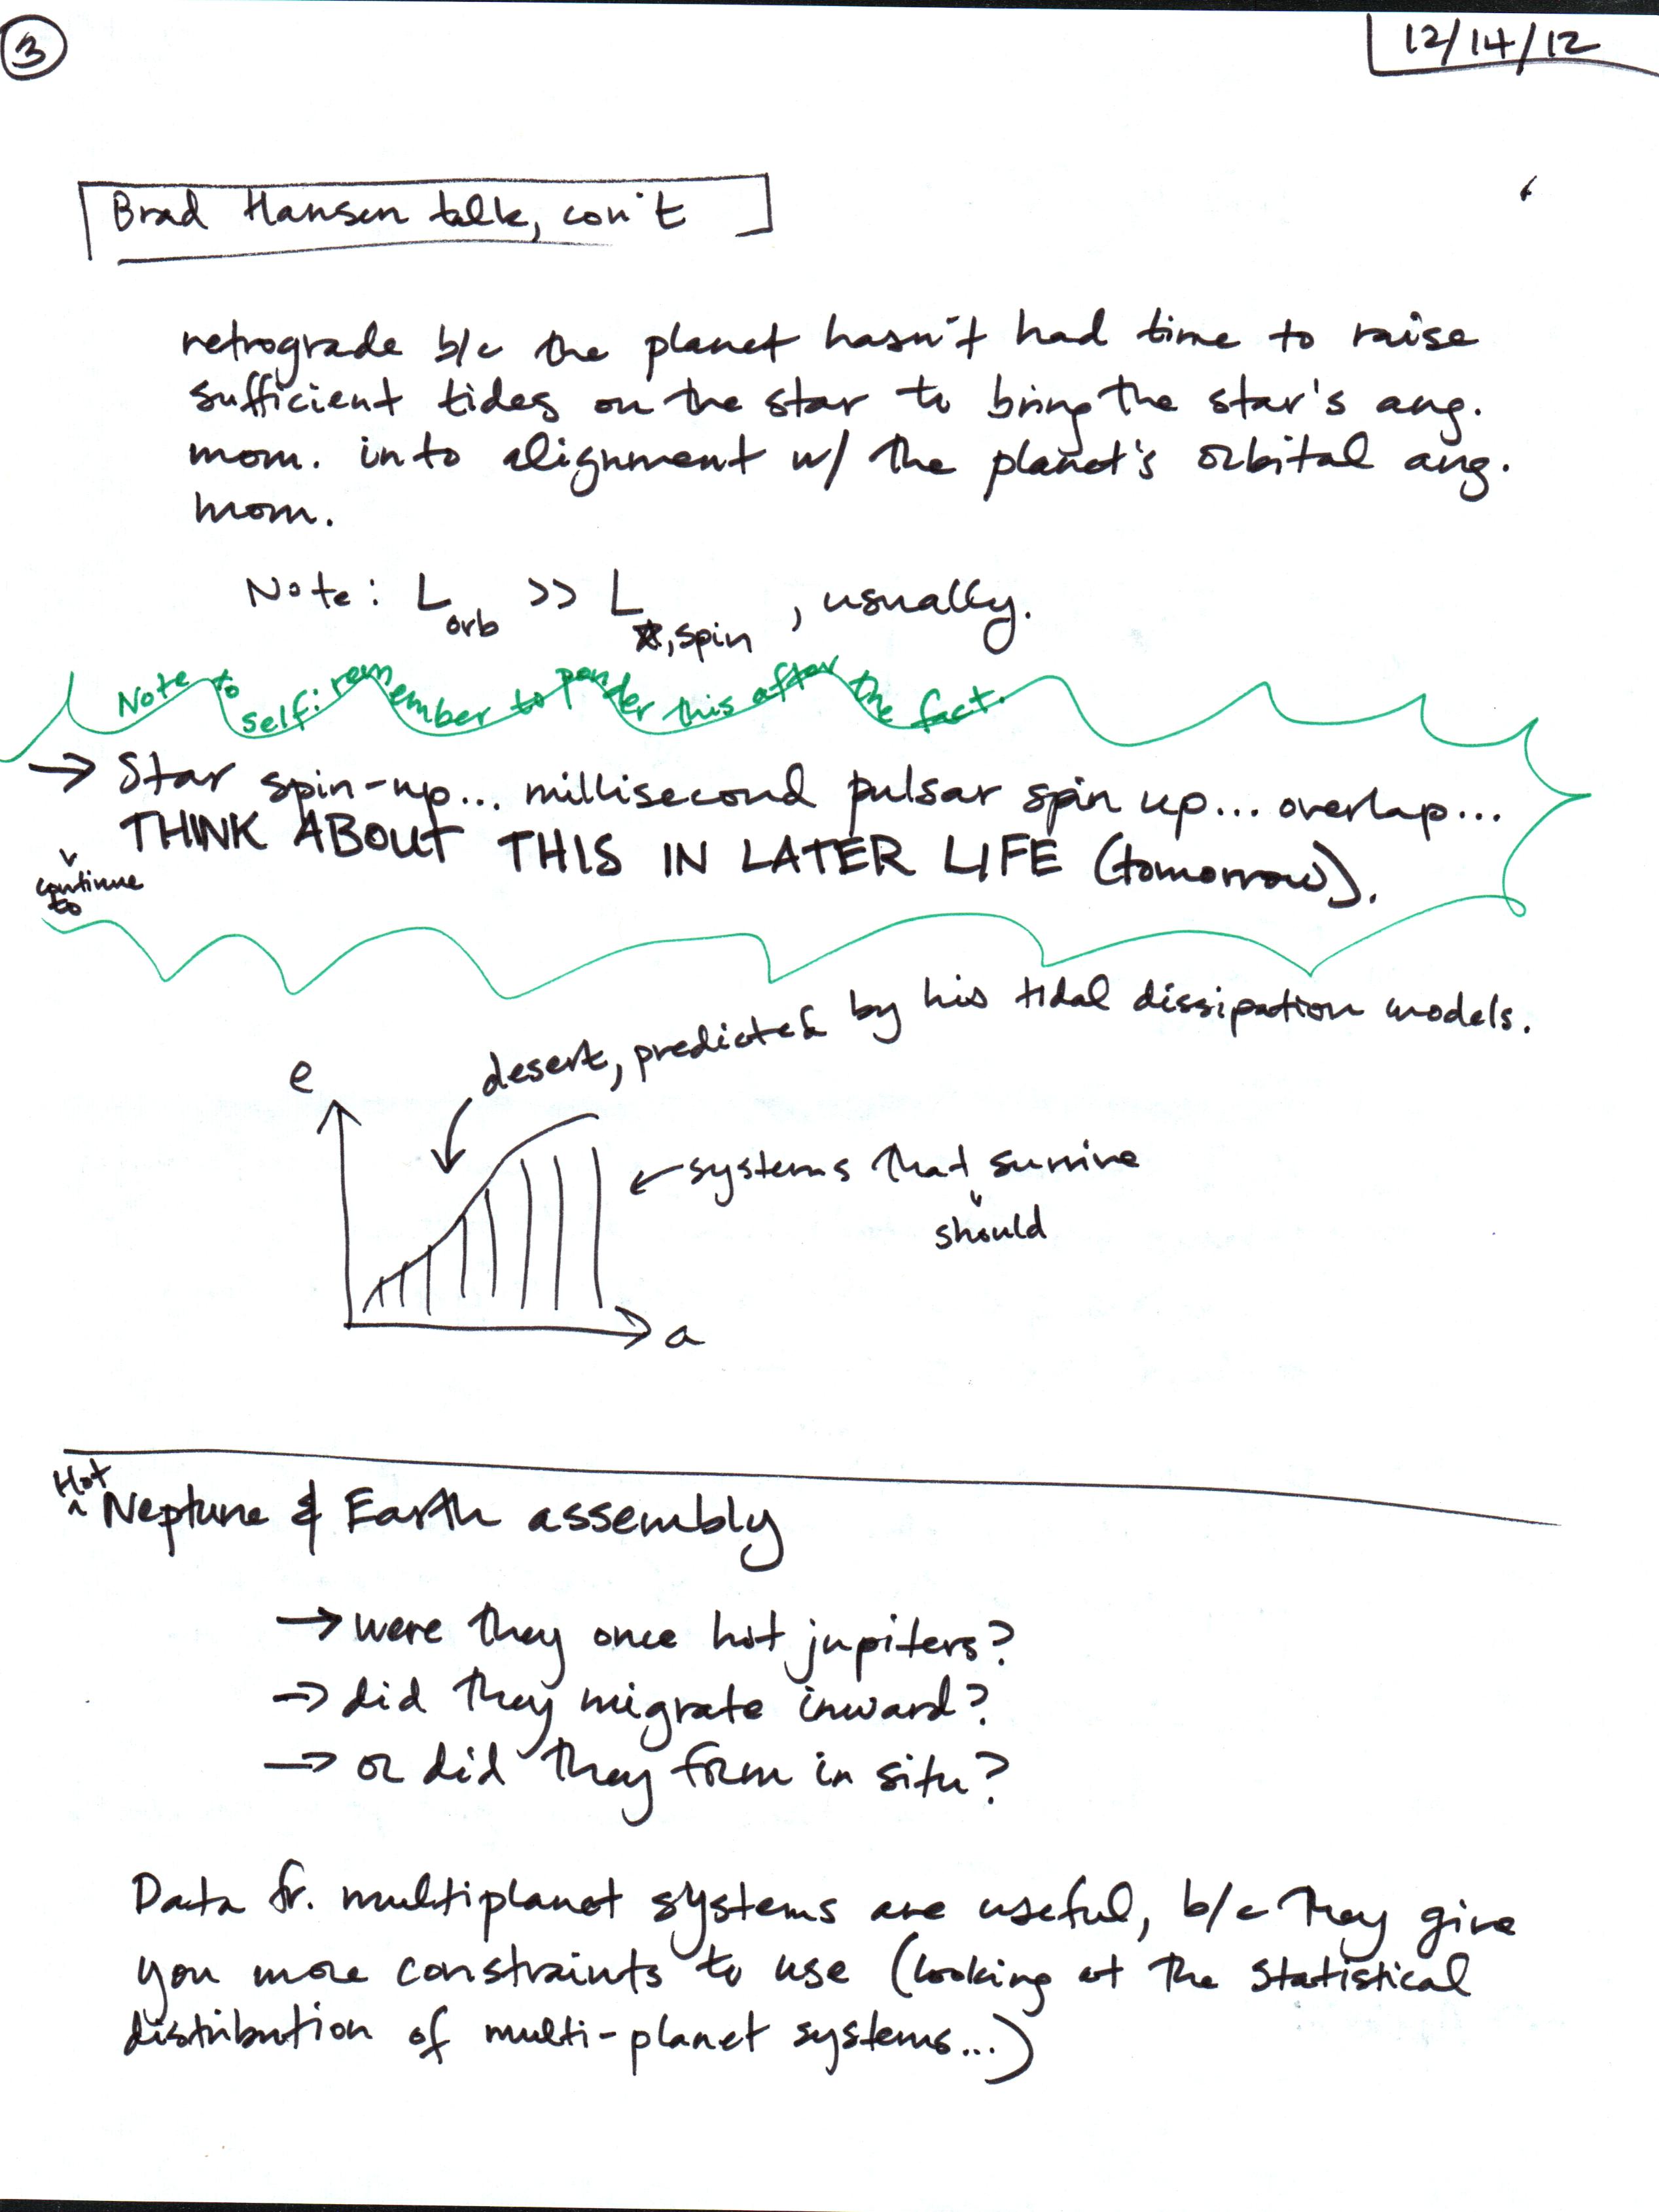 3
12/14/12
Brad Hansen talk, con't
retrograde b/c the planet hasn't had time to raise
sufficient tides on the star to bring the star's ang.
mom. into alignment w/ the planet's orbital ang.
mom.
Note: L orb >> L ☆,spin , usually.
Note to self: remember to ponder this after the fact.
→ Star spin-up... millisecond pulsar spin up... overlap...
continue to
THINK ABOUT THIS IN LATER LIFE (tomorrow).
desert, predicted by his tidal dissipation models.
e
← systems that survive
should
a
Hot
^ Neptune & Earth assembly
→ were they once hot jupiters?
→ did they migrate inward?
→ or did they form in situ?
Data fr. multiplanet systems are useful, b/c they give
you more constraints to use (looking at the statistical
distribution of multi-planet systems...)